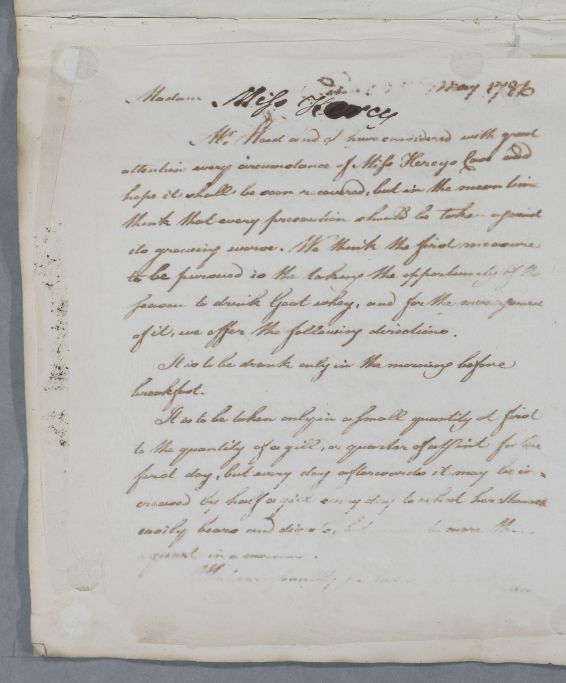 May 1786
Madam Miss Hercy
Mr. Wood and I have considered with great
attention every circumstance of Miss Hercys Case and
hope it shall be soon recovered, but in the mean time
think that every precaution should be taken against
its growing worse. We think the first measure
to be pursued is the taking the opportunity of the
season to drink Goat whey, and for the management
of it, we offer the following directions.
It is to be drank only in the morning before
breakfast.
It is to be taken only in a small quantity at first
to the quantity of a gill, or quarter of a pint for the
first day, but every day afterwards it may be in=
creased by half a gill every day to what her stomach
easily bears and digests, but never to more than
a quart in a morning.